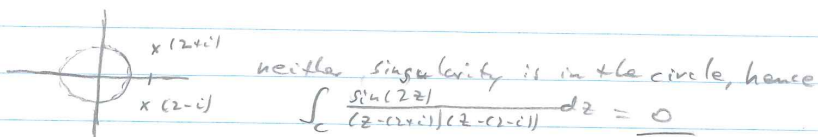 x (2+i)
neither singularity is in the circle, hence
x (2-i)
∫_C sin(2z) / ((z-(2+i))(z-(2-i))) dz = 0